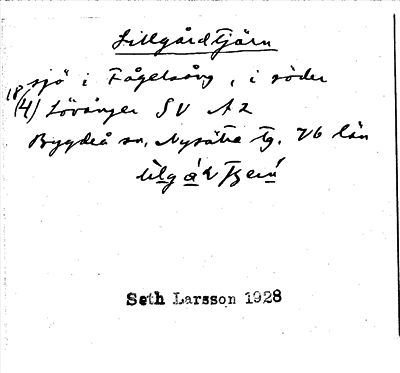 Lillgårdtjärn
sjö i Fågelsång, i söder
18 (4) Lövånger SV A2
Bygdeå sn, Nysätra tg. Vb län
Seth Larsson 1928